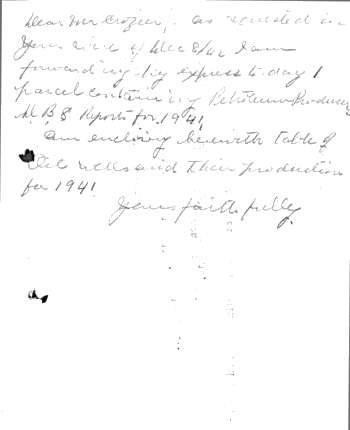 Dear Mr Crozier, as requested in
Yours of Dec 8/42 I am
forwarding by express to-day 1
parcel containing Petroleum Producers
D.B.S Reports for 1941
am enclosing herewith table of
Oil wells and their production
for 1941
Yours faithfully